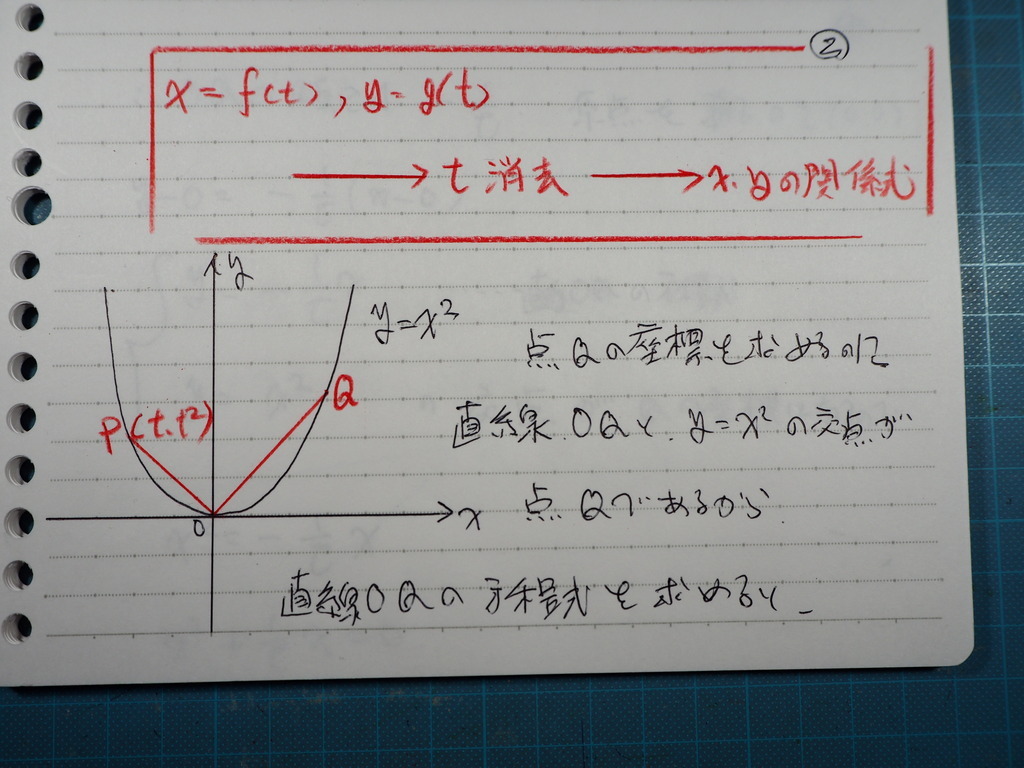 ②
x = f(t), y = g(t)
→ t 消去 → x, yの関係式
y
y=x²
P(t, t²)
Q
O
x
点Qの座標を求めるのに
直線OQと, y=x²の交点が
点Qであるから
直線OQの方程式を求めると_